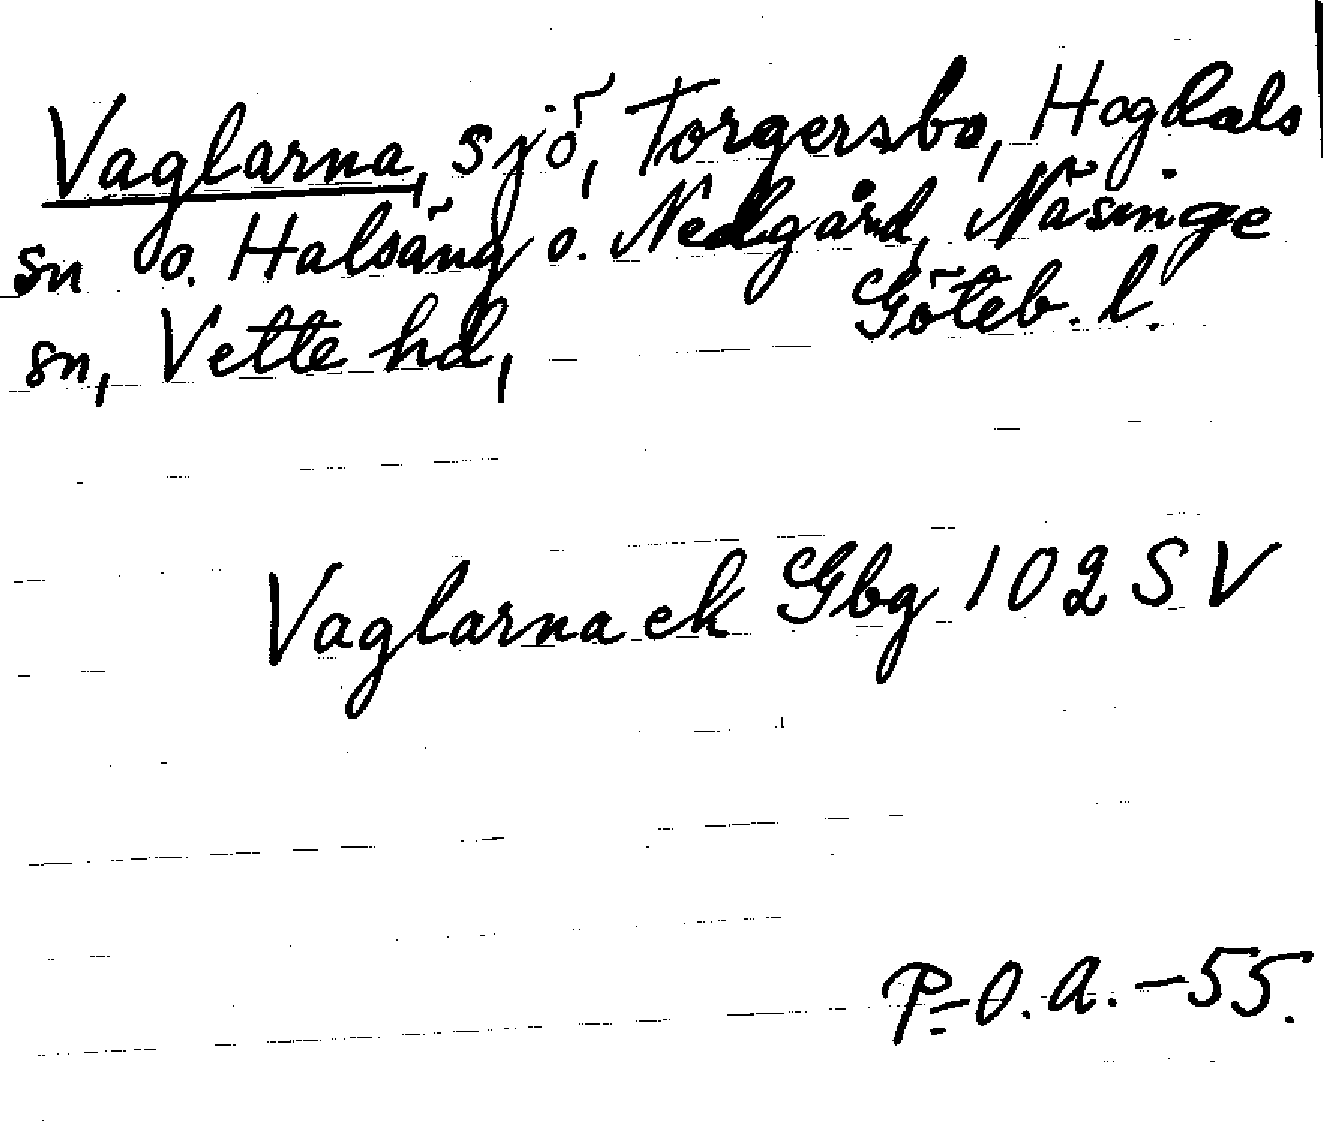 Vaglarna, sjö, Torgersbo, Hogdals
sn o. Halsäng o. Nedgård, Näsinge
sn, Vette hd, Göteb. l.
Vaglarna ek Gbg 102 SV
P-O.A. -55.